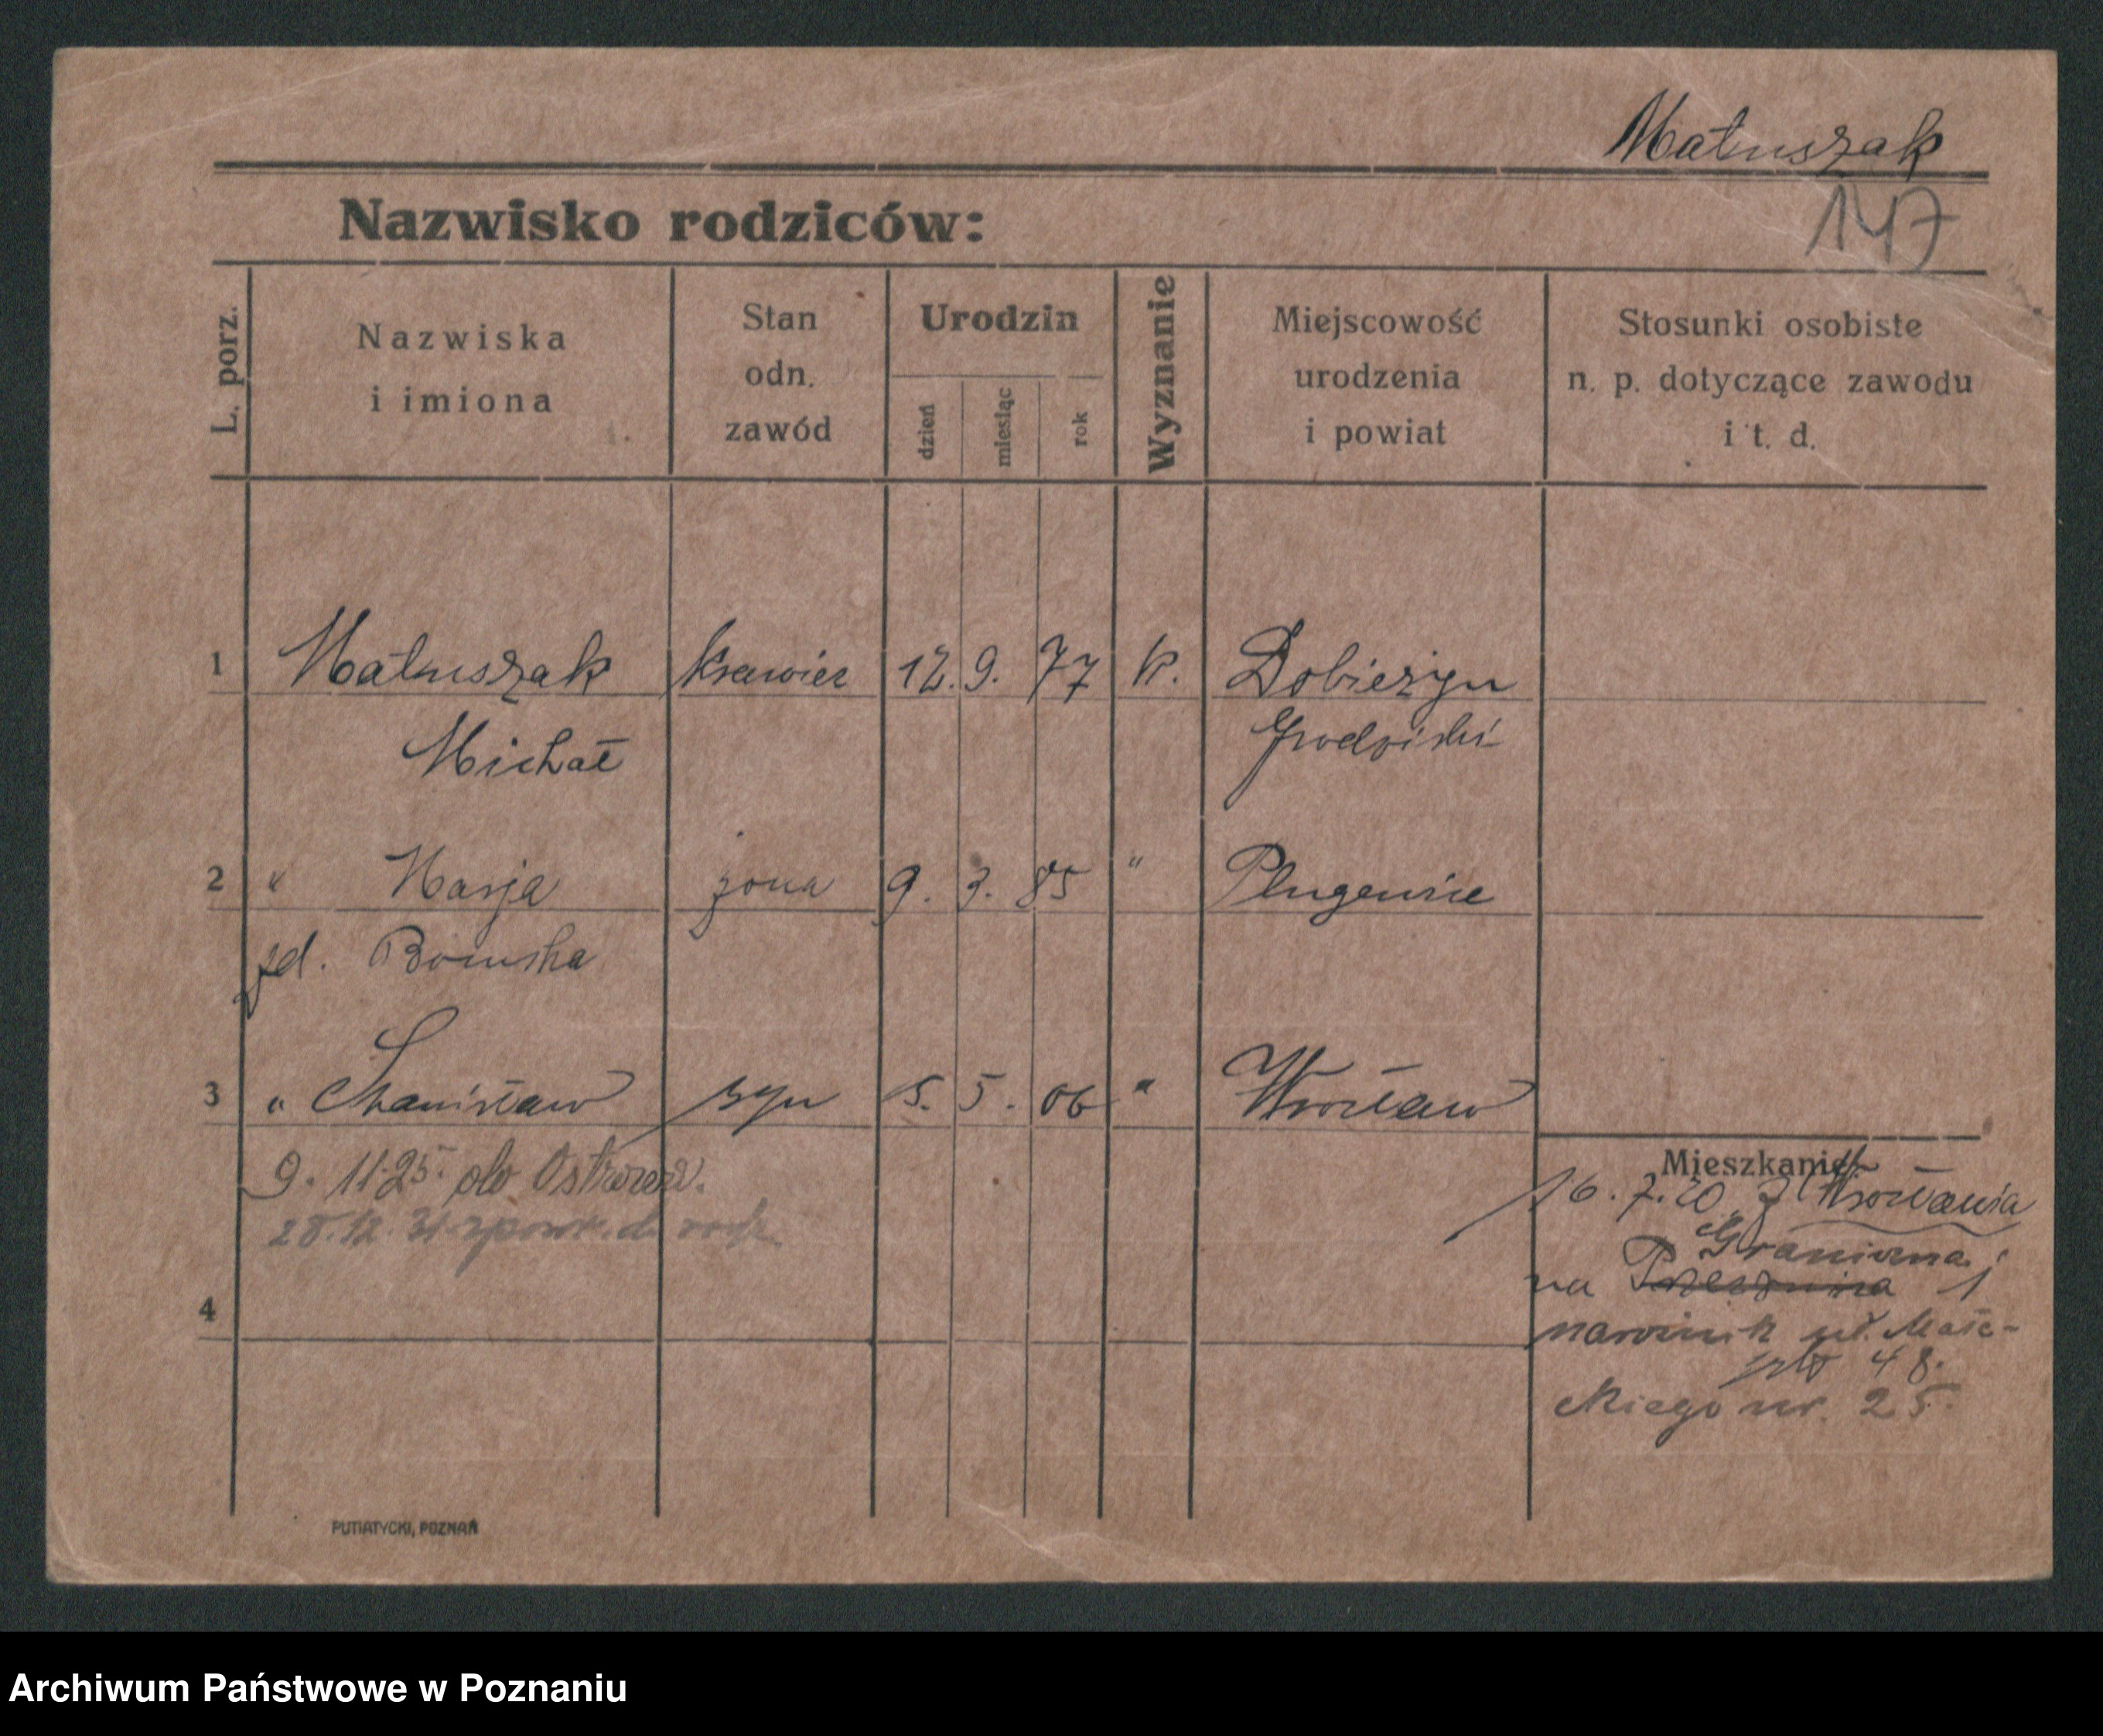 Matuszak
147
Nazwisko rodziców:
L. porz.
Nazwiska
i imiona
Stan
odn.
zawód
Urodzin
dzień
miesiąc
rok
Wyznanie
Miejscowość
urodzenia
i powiat
Stosunki osobiste
n. p. dotyczące zawodu
i t. d.
1 Matuszak krawiec 12. 9. 77 k. Dobieżyn
Michał Grodziski
2 " Marja żona 9. 3. 85 "
zd.
3 " Stanisław syn 15. 5. 06 " Wrocław
9. 11. 25. do Ostrowa.
28. 12. 31. z powr. do rodz.
Mieszkanie
16. 7. 20. z Wrocławia
Graniczna
na
48.
nr. 25.
4
PUTIATYCKI, POZNAŃ
Archiwum Państwowe w Poznaniu